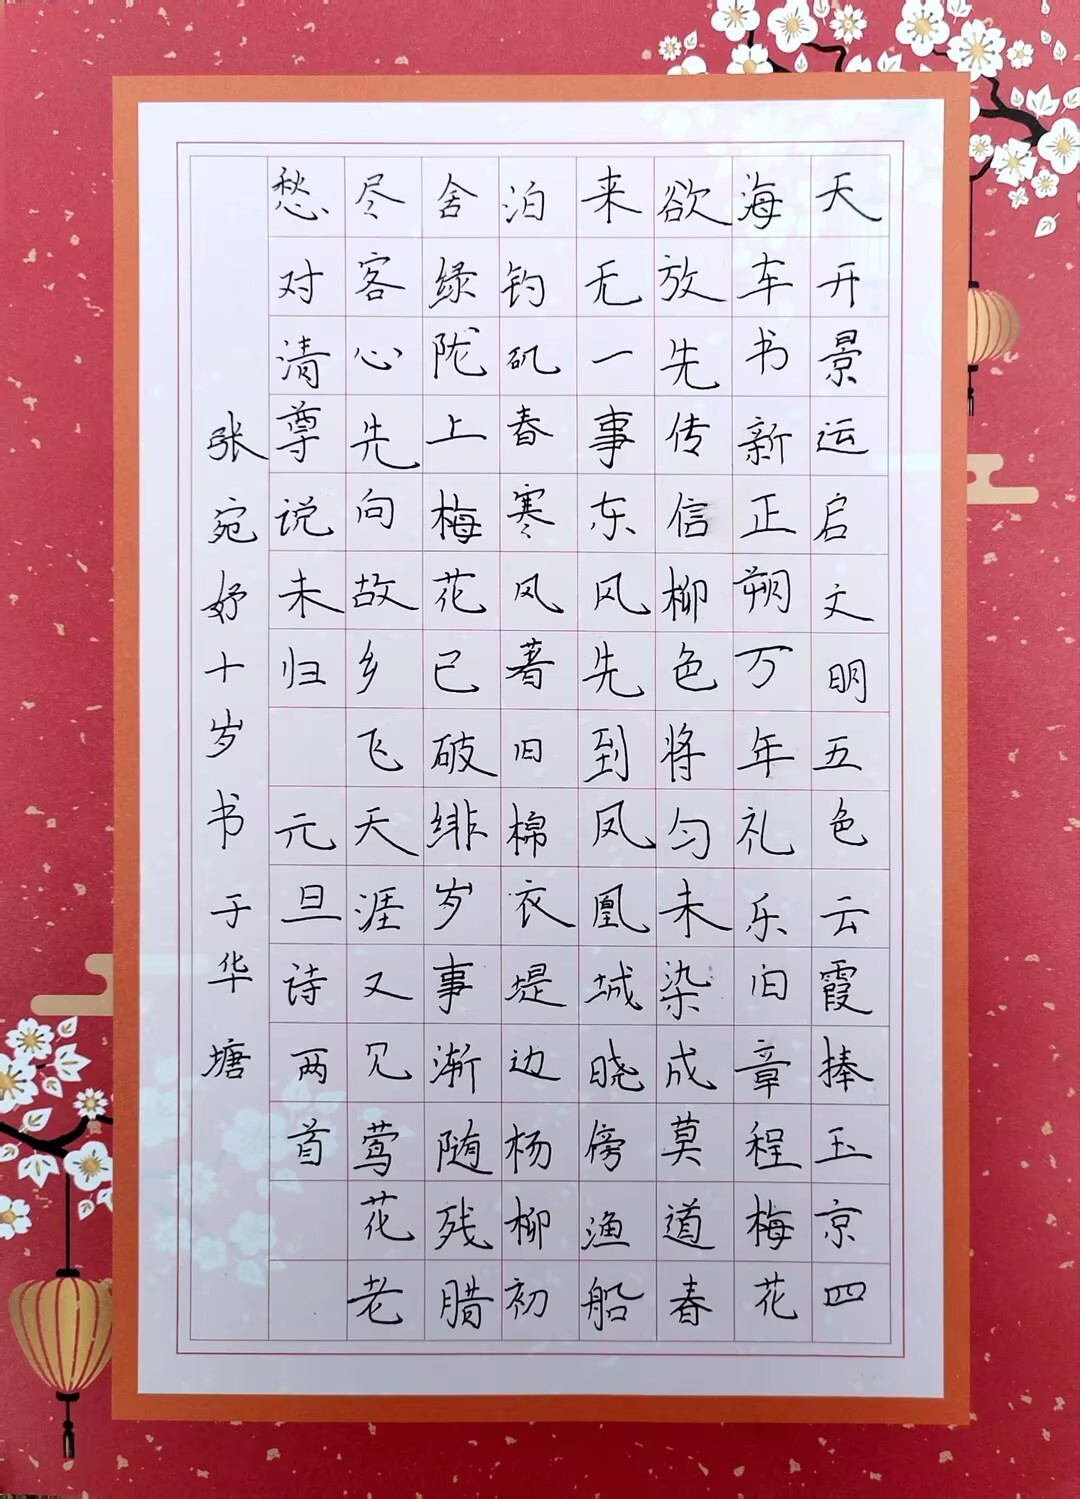 天开景运启文明五色云霞捧玉京四
海车书新正朔万年礼乐旧章程梅花
欲放先传信柳色将匀未染成莫道春
来无一事东风先到凤凰城晓傍渔船
泊钓矶春寒风著旧棉衣堤边杨柳初
舍绿陇上梅花已破绯岁事渐随残腊
尽客心先向故乡飞天涯又见莺花老
愁对清尊说未归 元旦诗两首
张宛妤十岁书于华塘